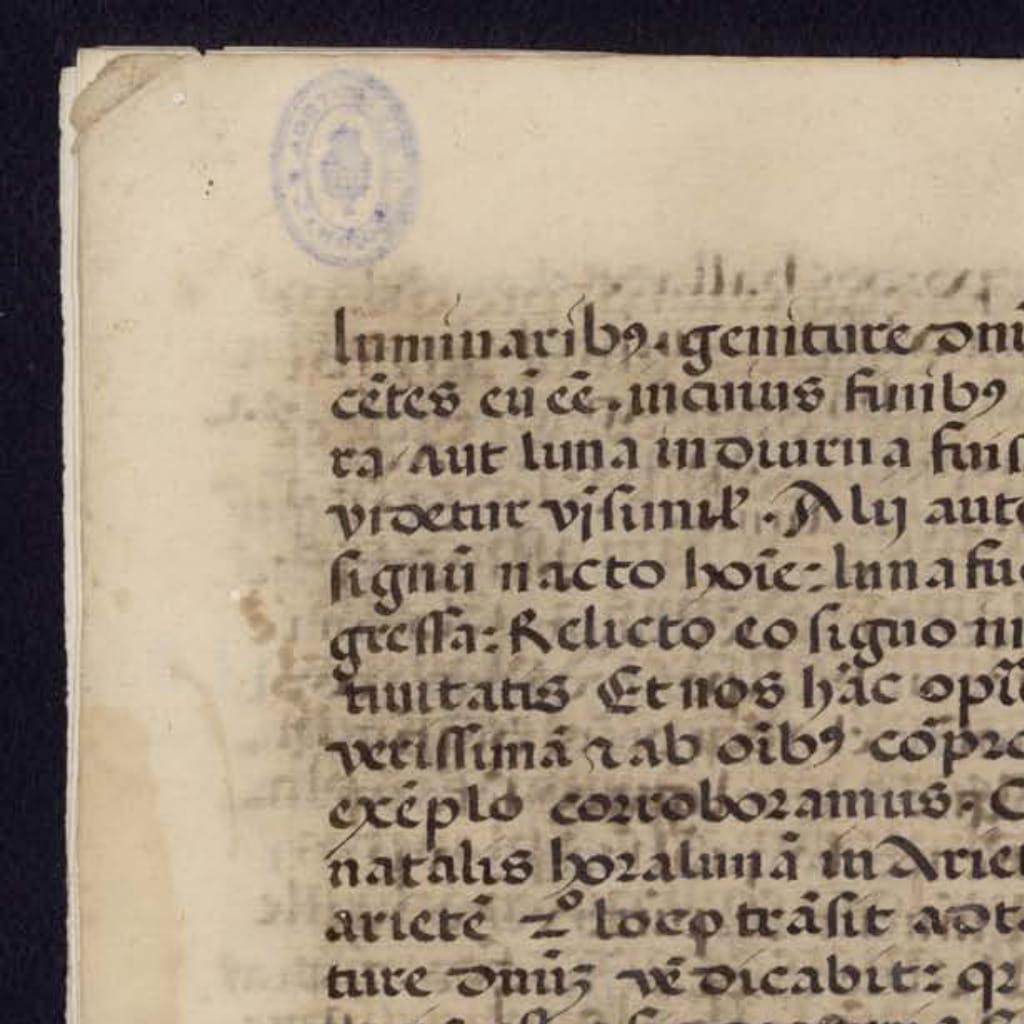 luminaribꝫ. geniture dm̄
cētes eū eē. incuius finibꝫ
ra aut luna in diurna fuis
videtur v̓isimil̓. Alij aut
signū nacto hoīe: luna fu
gressa: Relicto eo signo in
tiuitatis Et nos hāc opī
verissimā ⁊ ab oībꝫ cōpro
exēplo corroboramus. C
natalis hora lunā in Ariet
arietē loco trāsit adt
ture dn̄iꝫ vēdicabit: qr